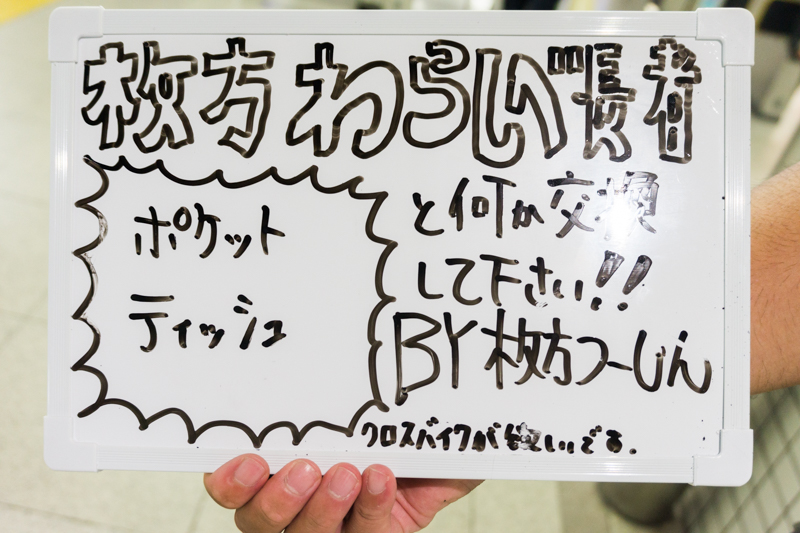 枚方わらしい長者
ポケット
ティッシュ
と何か交換
して下さい!!
BY 枚方つーしん
クロスバイクが欲しいです。